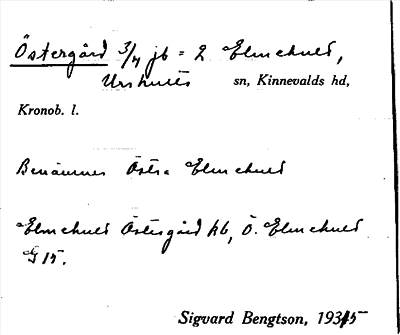 Östergård 3/4 jb = 2 Elmehult,
Urshult sn, Kinnevalds hd,
Kronob. l.
Benämnes Östra Elmehult
Elmehult Östergård kb, Ö. Elmehult
G 15.
Sigvard Bengtson, 1935